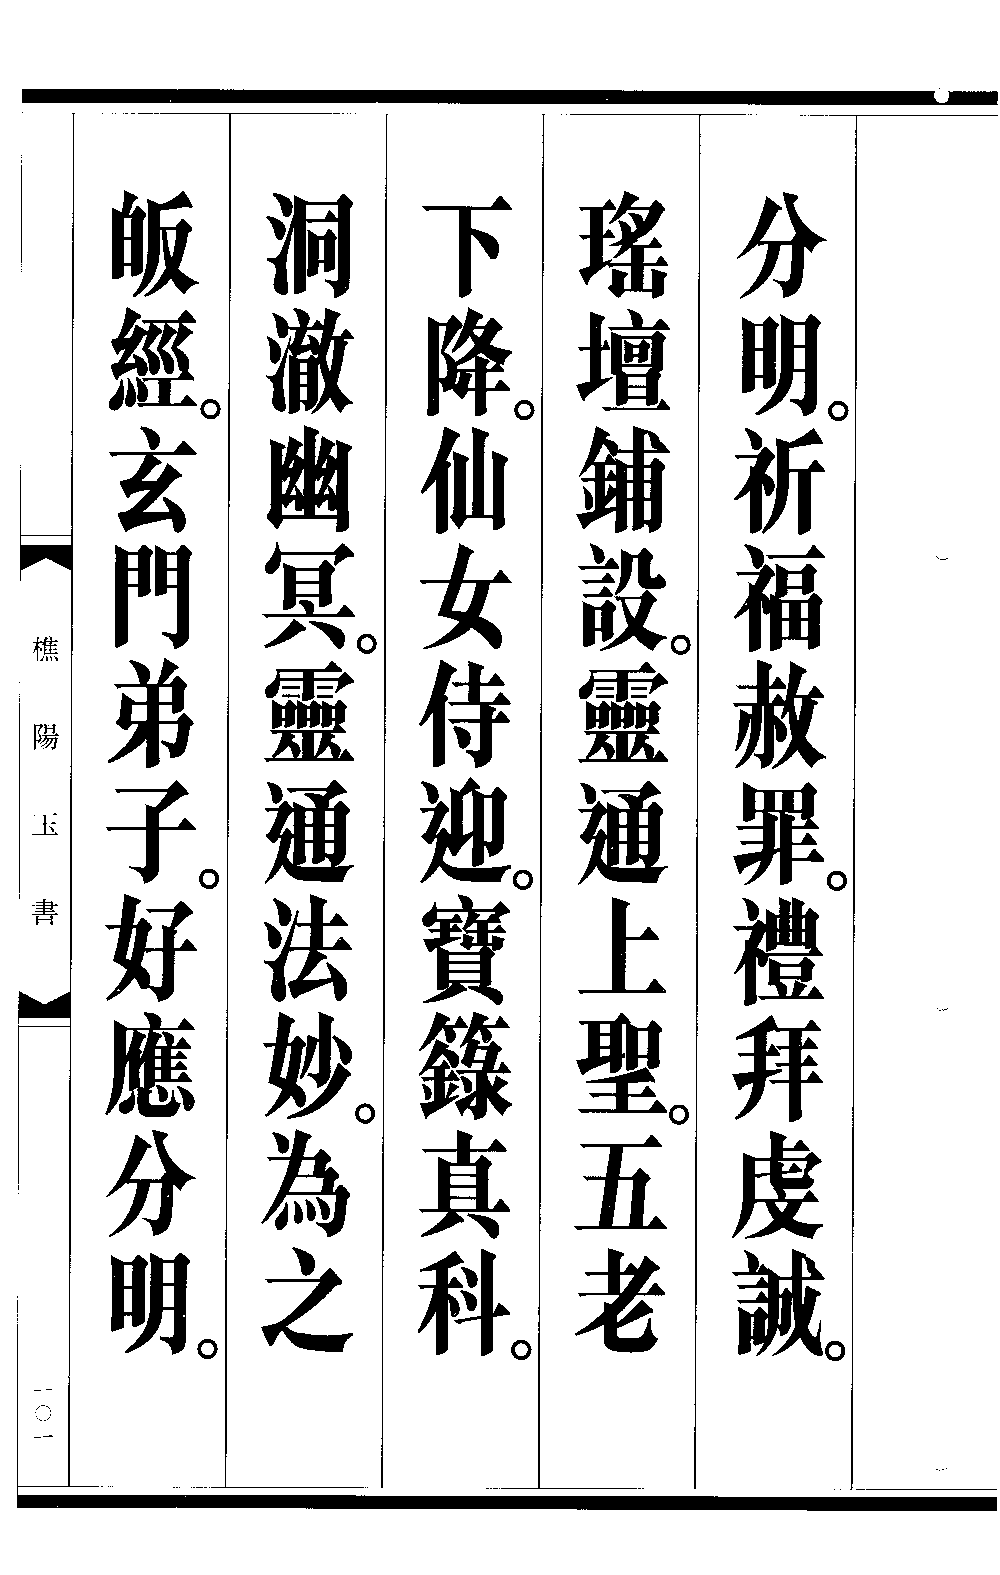 分明。祈福赦罪。禮拜虔誠。
瑤壇鋪設。靈通上聖。五老
下降。仙女侍迎。寶籙真科。
洞澈幽冥。靈通法妙。為之
皈經。玄門弟子。好應分明。
樵陽玉書
一〇一